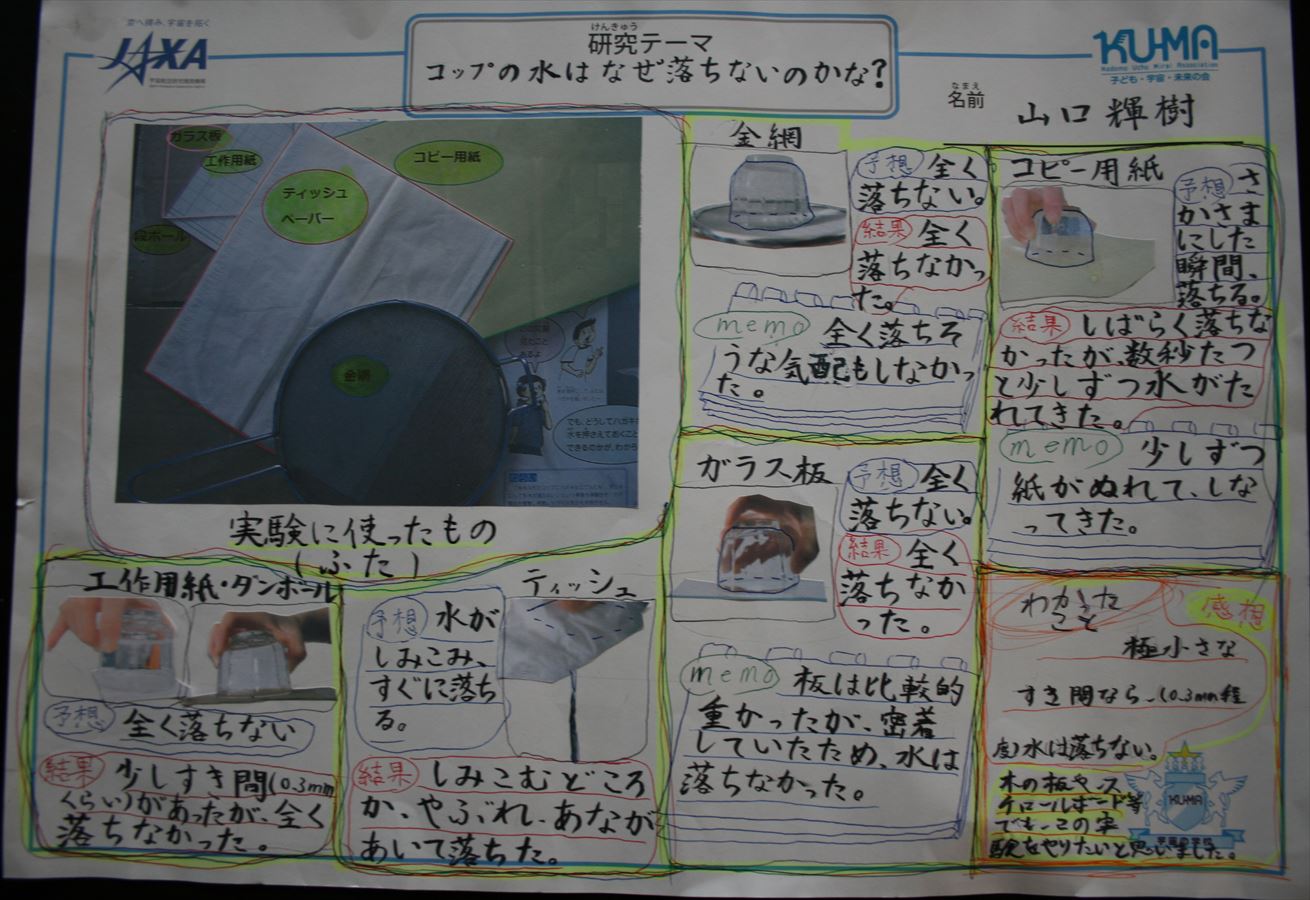 空へ挑み、宇宙を拓く
JAXA
けんきゅう
研究テーマ
コップの水はなぜ落ちないのかな?
KU-MA
Kodomo Uchu Mirai Association
子ども・宇宙・未来の会
なまえ
名前
山口輝樹
ガラス板
工作用紙
コピー用紙
ティッシュ
ペーパー
段ボール
金網
でも、どうしてハガキ
水を押さえておくこと
できるのかが、わから
実験に使ったもの
(ふた)
金網
予想 全く
落ちない。
結果 全く
落ちなかっ
た。
memo 全く落ちそ
うな気配もしなかっ
た。
コピー用紙
予想 さ
かさま
にした
瞬間、
落ちる。
結果 しばらく落ちな
かったが、数秒たつ
と少しずつ水がた
れてきた。
memo 少しずつ
紙がぬれて、しな
ってきた。
ガラス板
予想 全く
落ちない。
結果 全く
落ちなか
った。
memo 板は比較的
重かったが、密着
していたため、水は
落ちなかった。
工作用紙・ダンボール
予想 全く落ちない
結果 少しすき間(0.3mm
くらい)があったが、全く
落ちなかった。
ティッシュ
予想 水が
しみこみ、
すぐに落ち
る。
結果 しみこむどころ
か、やぶれ、あなが
あいて落ちた。
わかった
こと
感想
極小さな
すき間なら、(0.3mm程
度)水は落ちない。
木の板や、ス
チロールボード等
でも、この実
験をやりたいと思いました。
KU-MA
宇宙の学校